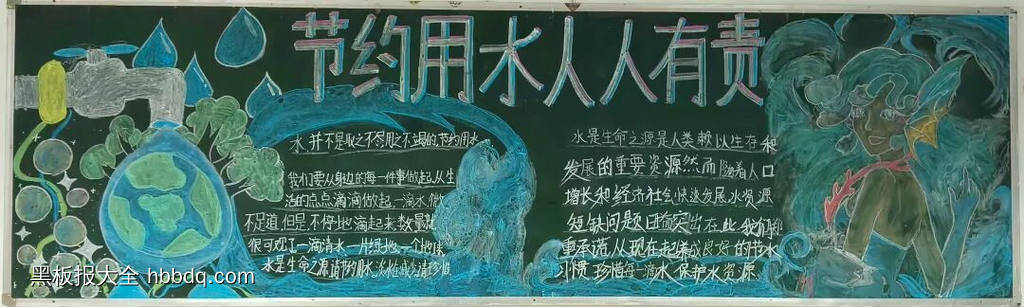 节约用水人人有责
水并不是取之不尽用之不竭的,节约用水
我们要从身边的每一件事做起,从生
活的点点滴滴做起,一滴水,微
不足道,但是不停地滴起来,数量就
很可观了一滴清水一片绿地、一个地球
水是生命之源请节约用水
水是生命之源是人类赖以生存和
发展的重要资源然而随着人口
增长和经济社会快速发展水资源
短缺问题日益突出在此我们
重承诺,从现在起养成良好的节水
习惯珍惜每一滴水保护水资源
黑板报大全 hbbdq.com